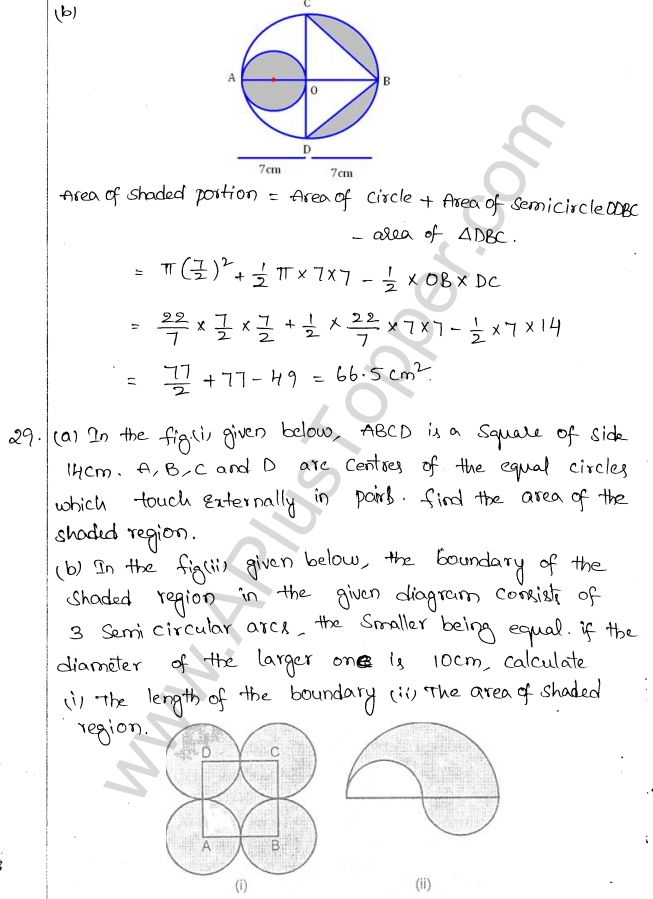 (b)
C
A
O
B
D
7cm 7cm
Area of shaded portion = Area of circle + Area of semicircle DDBC
- area of △DBC.
= π(7/2)² + 1/2 π × 7×7 - 1/2 × OB × DC
= 22/7 × 7/2 × 7/2 + 1/2 × 22/7 × 7×7 - 1/2 × 7 × 14
= 77/2 + 77 - 49 = 66.5 cm².
29. (a) In the fig.(i) given below, ABCD is a square of side
14cm. A, B, C and D are centres of the equal circles
which touch externally in pairs. find the area of the
shaded region.
(b) In the fig(ii) given below, the boundary of the
shaded region in the given diagram consists of
3 semi circular arcs, the smaller being equal. if the
diameter of the larger one is 10cm, calculate
(i) The length of the boundary (ii) The area of shaded
region.
D C
A B
(i) (ii)
www.APlusTopper.com